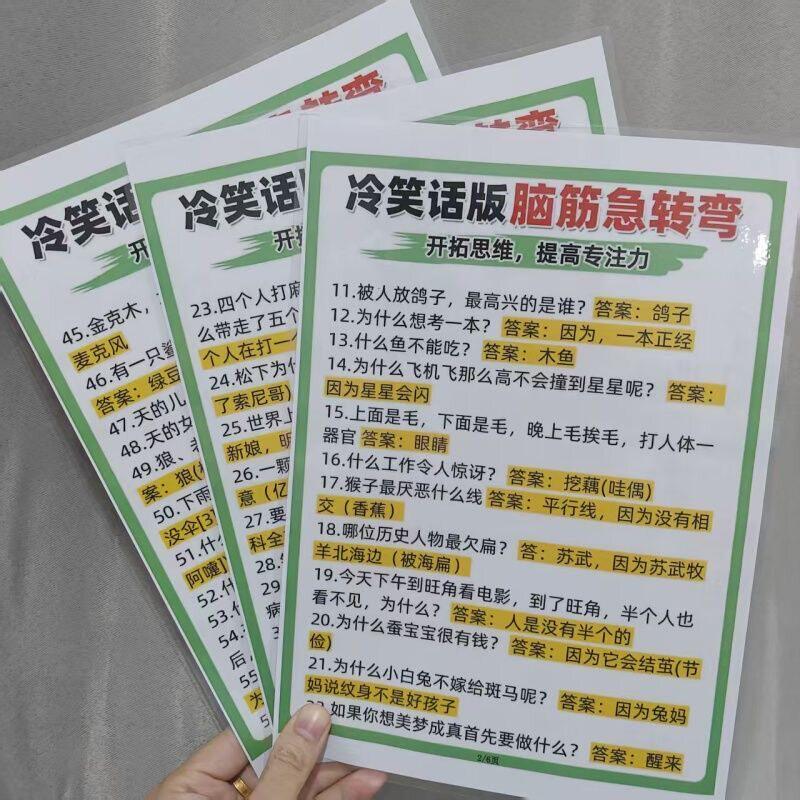 冷笑话
开拓
45.金克木，
麦克风
46.有一只鲨
答案：绿豆
47.天的儿
48.天的女
49.狼、老
案：狼(
50.下雨
没伞[3]
51.什
阿嚏]
52.什
53.什
54.
后
55
为
5
急转弯
冷笑话版
开拓
23.四个人打麻
么带走了五个
个人在打一个
24.松下为什
了索尼哥）
25.世界上
新娘，明
26.一颗
意（亿
27.要
科全
28.
29
病
3
转弯
冷笑话版脑筋急转弯
开拓思维，提高专注力
11.被人放鸽子，最高兴的是谁？答案：鸽子
12.为什么想考一本？答案：因为，一本正经
13.什么鱼不能吃？答案：木鱼
14.为什么飞机飞那么高不会撞到星星呢？答案：
因为星星会闪
15.上面是毛，下面是毛，晚上毛挨毛，打人体一
器官 答案：眼睛
16.什么工作令人惊讶？答案：挖藕(哇偶)
17.猴子最厌恶什么线 答案：平行线，因为没有相
交（香蕉）
18.哪位历史人物最欠扁？答：苏武，因为苏武牧
羊北海边（被海扁）
19.今天下午到旺角看电影，到了旺角，半个人也
看不见，为什么？答案：人是没有半个的
20.为什么蚕宝宝很有钱？答案：因为它会结茧(节
俭)
21.为什么小白兔不嫁给斑马呢？答案：因为兔妈
妈说纹身不是好孩子
22.如果你想美梦成真首先要做什么？答案：醒来
2/6页